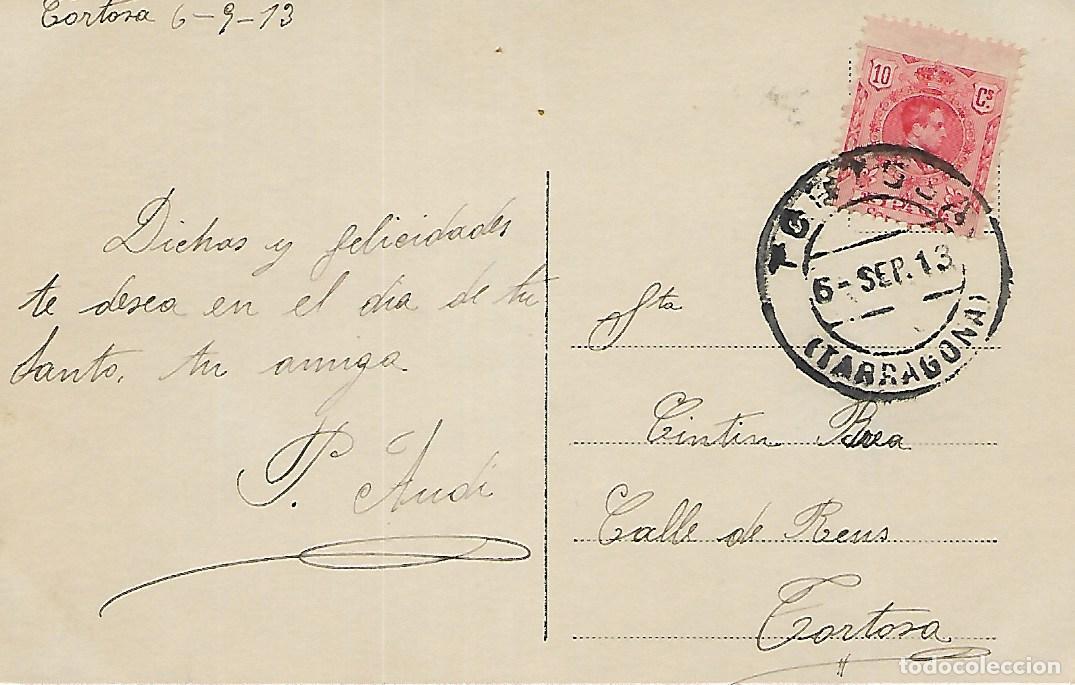 Tortosa 6-9-13
Dichas y felicidades
te desea en el dia de tu
Santo, tu amiga
P. Audí
10 Cs
TORTOSA
6-SEP.13
(TARRAGONA)
Sta
Cintin
Calle de Reus
Tortosa
todocoleccion